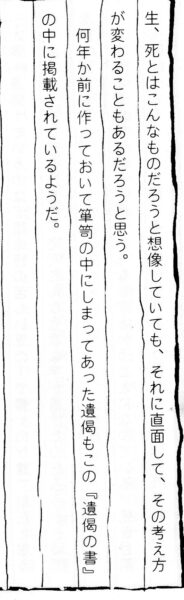 生、死とはこんなものだろうと想像していても、それに直面して、その考え方
が変わることもあるだろうと思う。
何年か前に作っておいて箪笥の中にしまってあった遺偈もこの『遺偈の書』
の中に掲載されているようだ。